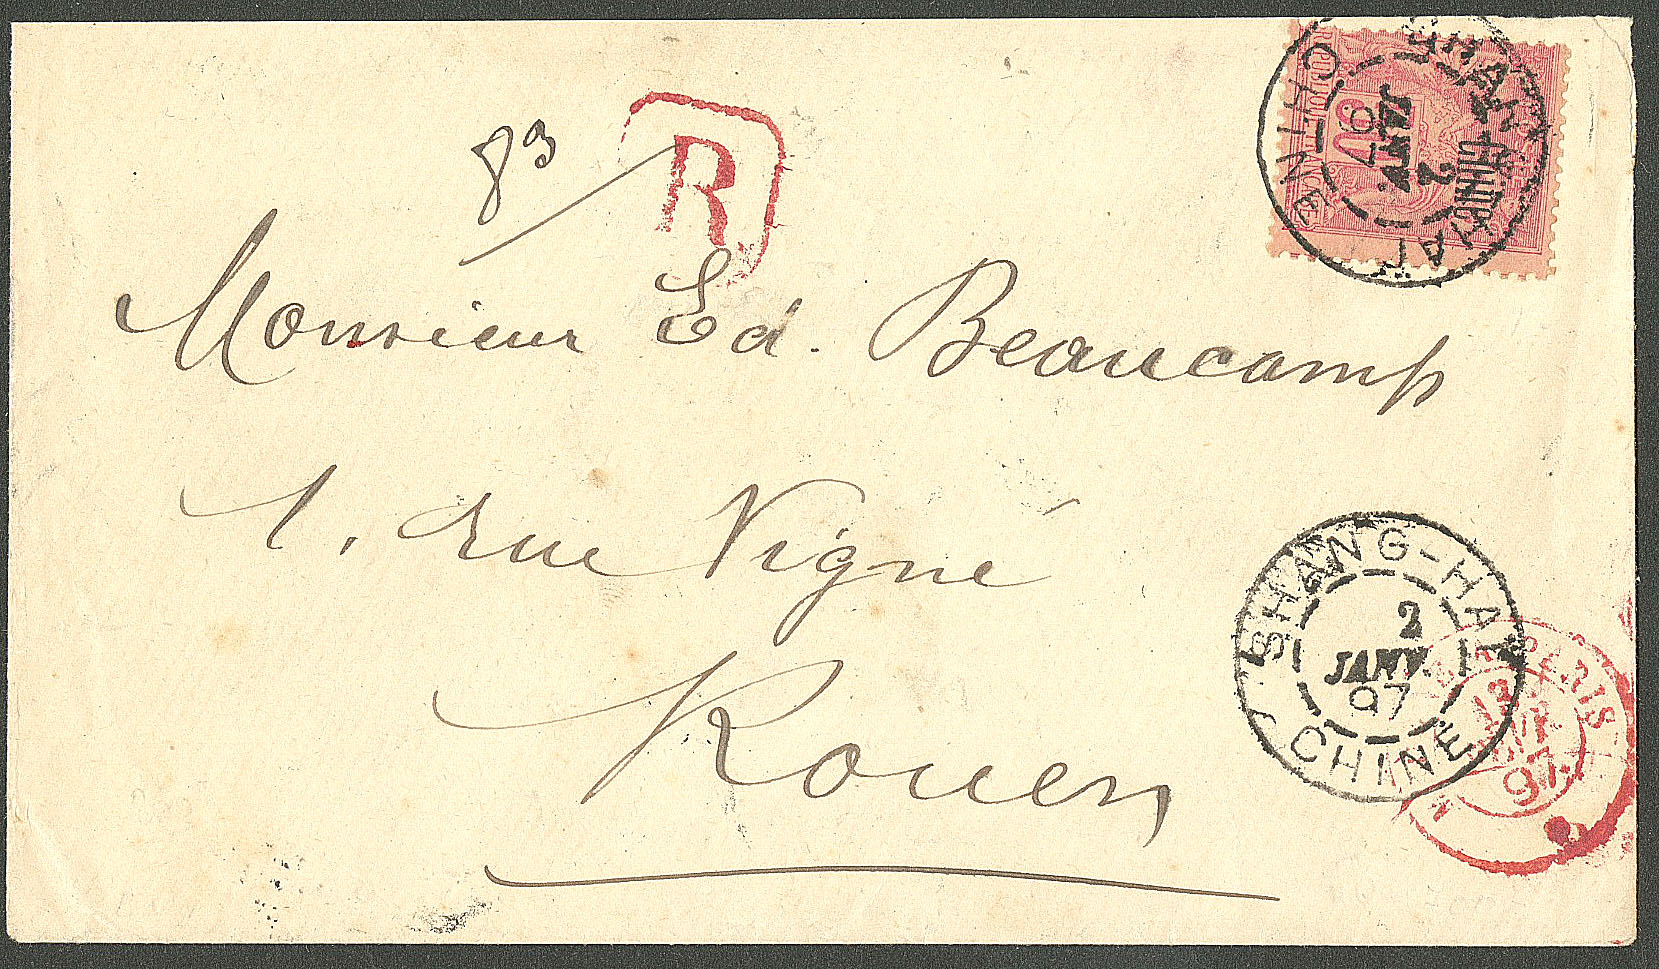 83
R
Monsieur Ed. Beaucamp
1. rue Vigné
Rouen
SHANG-HAI
2
JANV.
97
CHINE
CHINE
2
JANV.
97
50
CHINE
PARIS
97